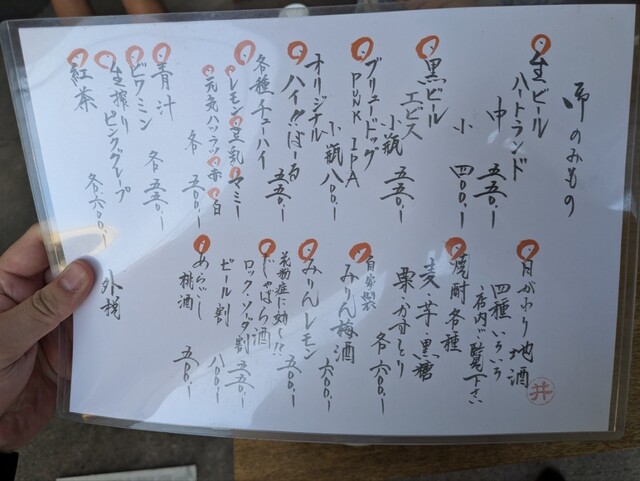 御のみもの
生ビール
ハートランド
中 五五〇.ー
小 四〇〇.ー
黒ビール
エビス
小瓶 五五〇.ー
ブリュードッグ
PUNK IPA
小瓶 八〇〇.ー
オリジナル
ハイ!!ぼーる 五五〇.ー
各種チューハイ
レモン 豆乳 マミー
元気ハツラツ 赤 白
各 五〇〇.ー
青汁
ビワミン 各 五五〇.ー
生搾りピンクグレープ
紅茶 各 六〇〇.ー
外税
月がわり地酒
四種いろいろ
店内ご覧下さい
焼酎各種
麦・芋・黒糖
栗・かすとり
各 六〇〇.ー
自家製
みりん梅酒 六〇〇.ー
みりんレモン 五〇〇.ー
花粉症に効く!!
じゃばら酒
ロック・ソーダ割 五五〇.ー
ビール割 八〇〇.ー
あらごし
桃酒 五〇〇.ー
井